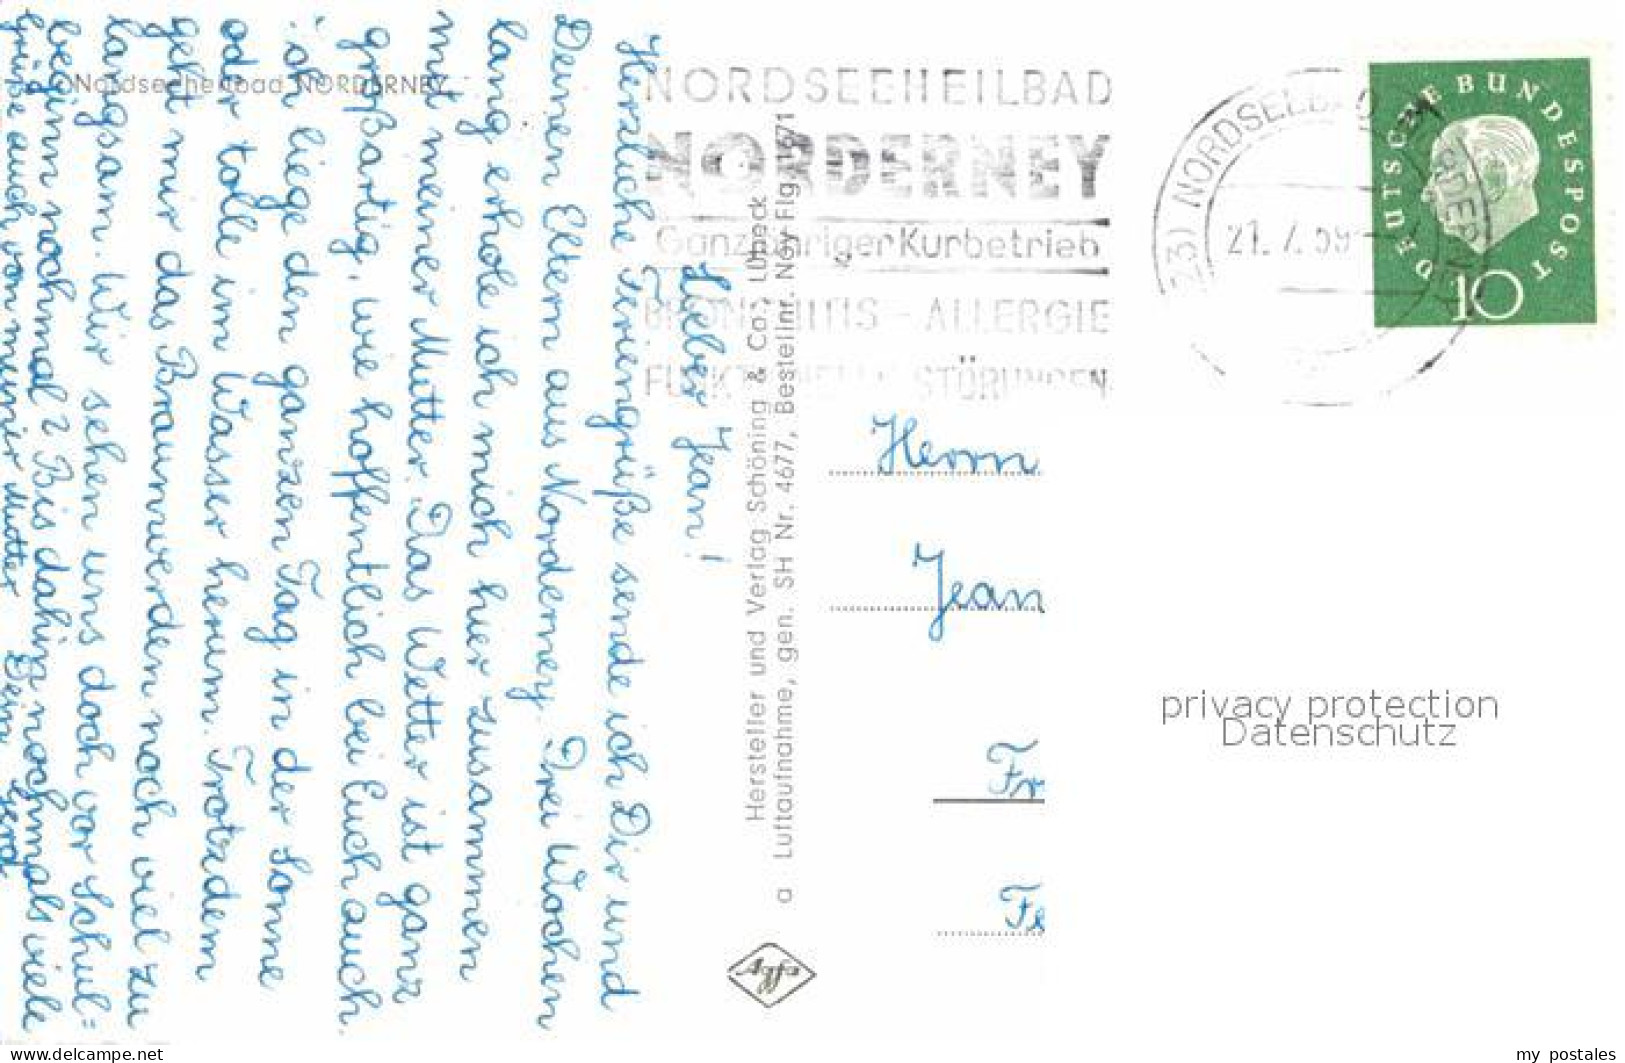 Nordseeheilbad NORDERNEY
Lieber Jean!
Herzliche Feriengrüße sende ich Dir und
Deinen Eltern aus Norderney. Drei Wochen
lang erhole ich mich hier zusammen
mit meiner Mutter. Das Wetter ist ganz
großartig, wie hoffentlich bei Euch auch.
ich liege den ganzen Tag in der Sonne
oder tolle im Wasser herum. Trotzdem
geht mir das Braunwerden noch viel zu
langsam. Wir sehen uns doch vor Schul=
beginn nochmal? Bis dahin nochmals viele
Grüße auch von meiner Mutter Dein
Hersteller und Verlag Schöning & Co., Lübeck
a Luftaufnahme, gen. SH Nr. 4677, Bestellnr. Ney Flg 1571
NORDSEEHEILBAD
NORDERNEY
Ganzjähriger Kurbetrieb
BRONCHITIS - ALLERGIE
FUNKTIONELLE STÖRUNGEN
(23) NORDSEEBAD NORDERNEY
21.7.59
DEUTSCHE BUNDESPOST
10
Herrn
Jean
Fr
Fe
privacy protection
Datenschutz
akpool.de/delcampe.net
my_postales